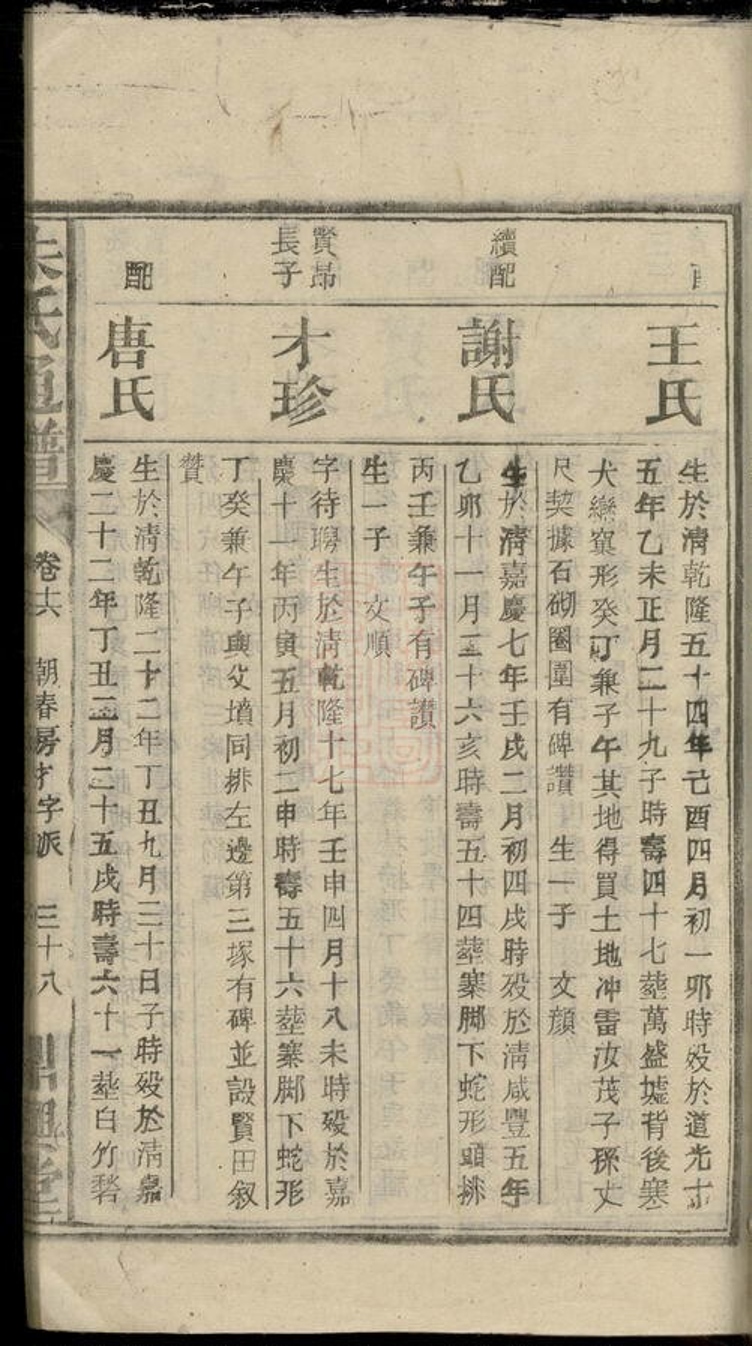 配
王氏
生於清乾隆五十四年己酉四月初一卯時歿於道光十
五年乙未正月二十九子時壽四十七塟萬盛墟背後寒
犬戀窠形癸丁兼子午其地得買土地冲雷汝茂子孫丈
尺契據石砌圈圍有碑讃 生一子 文顔
續配
謝氏
生於清嘉慶七年壬戌二月初四戌時歿於清咸豐五年
乙卯十一月三十六亥時壽五十四塟寨脚下蛇形頭排
丙壬兼午子有碑讃
生一子 文順
賢昂
長子
才珍
字待聘生於清乾隆十七年壬申四月十八未時歿於嘉
慶十一年丙寅五月初二申時壽五十六塟寨脚下蛇形
丁癸兼午子與父墳同排左邊第三塚有碑並設賢田叙
贊
配
唐氏
生於清乾隆二十二年丁丑九月三十日子時歿於清嘉
慶二十二年丁丑三月二十五戌時壽六十一塟白竹
朱氏通譜
卷十六
朝春房才字派
三十八